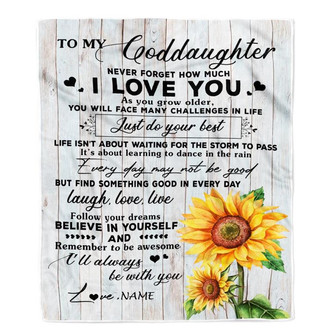 TO MY Goddaughter
NEVER FORGET HOW MUCH
I LOVE YOU
As you grow older,
YOU WILL FACE MANY CHALLENGES IN LIFE
Just do your best
LIFE ISN'T ABOUT WAITING FOR THE STORM TO PASS
It's about learning to dance in the rain
Every day may not be good
BUT FIND SOMETHING GOOD IN EVERY DAY
laugh, love, live
Follow your dreams
BELIEVE IN YOURSELF
AND
Remember to be awesome
I'll always
be with you
Love, NAME